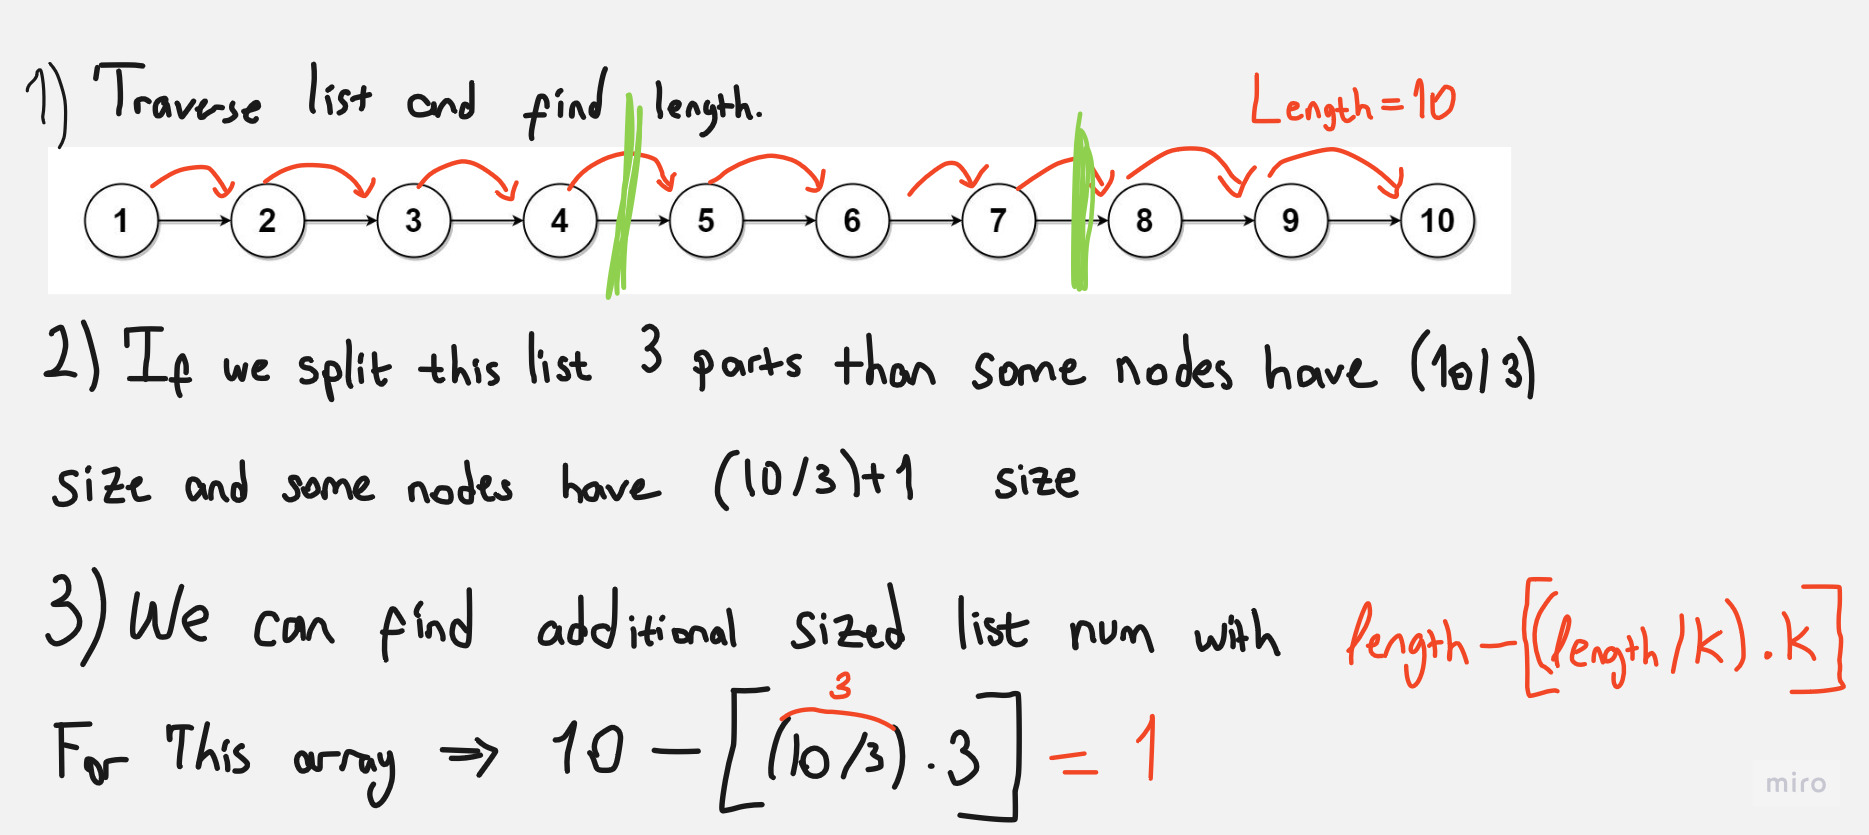 1) Traverse list and find length.
Length=10
1 2 3 4 5 6 7 8 9 10
2) If we split this list 3 parts than some nodes have (10/3)
size and some nodes have (10/3)+1 size
3) We can find additional sized list num with length-[(length/k).k]
3
For This array ⇒ 10-[(10/3).3] = 1
miro